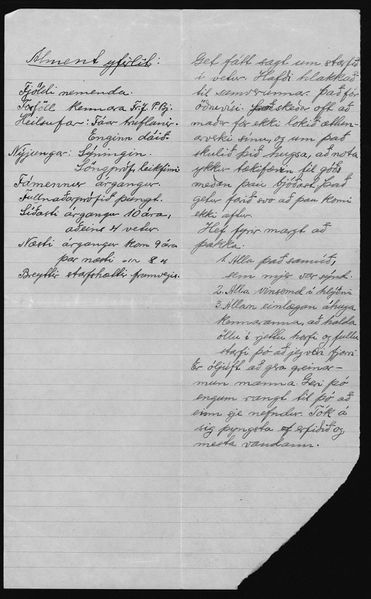 Alment yfirlit:
Fjöldi nemenda
Forföll kennara Fr.f. P. Bj.
Heilsufar: Fáir
Enginn dáið.
Nýjungar: Sýningin
Söngpróf, leikfimi
Fámennir árgangar.
Fullnaðarprófið þungt.
Síðasti árgangur 10 ára,
aðeins 4 vetur.
Næsti árgangur kom 9 ára
þar næsti - " - 8 "
Breyttir starfshættir framvegis.
Get fátt sagt um starfið
í vetur. Hafði hlakkað
til samverunnar. Það fór
öðruvísi. Það skeður oft að
maður fær ekki lokið ætlun-
arverki sínu, og um það
skulið þið hugsa, að nota
ykkur tækifærin til góðs
meðan þau bjóðast. Það
getur farið svo að þau komi
ekki aftur.
Hef fyrir margt að
þakka.
1. Alla þá samúð,
sem mjer var sýnd.
2. Alla vinsemd á heyðni
3. Allan einlægan áhuga
kennaranna, að halda
öllu í rjettu horfi og fullu
starfi þó að jeg væri fjarri
Er óljúft að gera greinar-
mun manna. Geri þó
engum rangt til þó að
einn sje nefndur. Tók á
sig þyngsta erfiðið og
mesta vandann.